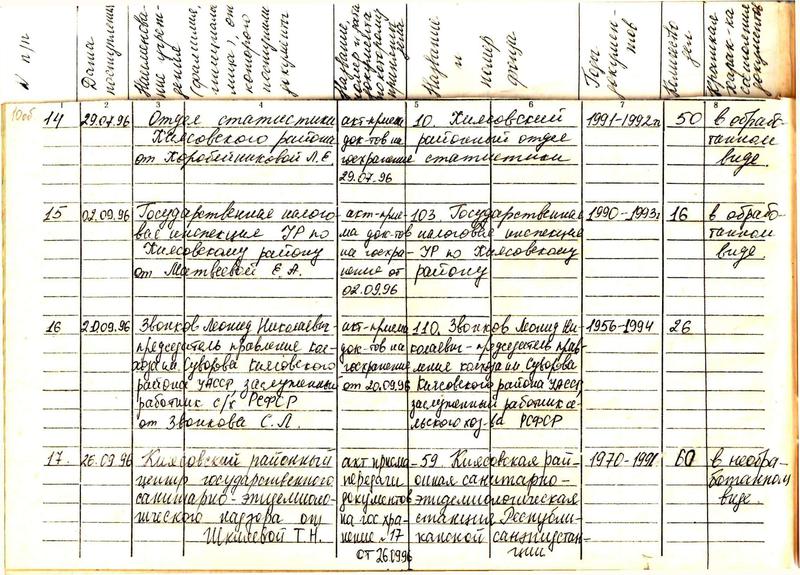 N п/п
Дата поступления
Наименование учреждения (фамилия, инициалы лица), от которого поступили документы
Название, номер и дата документа, по которому приняты дела
Название и номер фонда
Годы документов
Количество дел
Краткая харак-ка состояния документов
1 2 3 4 5 6 7 8
10об
14 29.07.96 Отдел статистики
Киясовского района
от Коробейниковой Л.Е.
акт-приема
док-тов на
госхранение
29.07.96
10. Киясовский
районный отдел
статистики
1991-1992 гг.
50
в обрабо-
танном
виде.
15 02.09.96 Государственная налого-
вая инспекция УР по
Киясовскому району
от Матвеевой Е.А.
акт-прие-
ма док-тов
на госхра-
нение от
02.09.96
103. Государственная
налоговая инспекция
УР по Киясовскому
району
1990-1993г.
16
в обрабо-
танном
виде.
16 20.09.96 Звонков Леонид Николаевич-
председатель правления кол-
хоза им. Суворова Киясовского
района УАССР, заслуженный
работник с/х РСФСР
от Звонкова С.Л.
акт-приема
док-тов на
госхранение
от 20.09.96
110. Звонков Леонид Ни-
колаевич-председатель прав-
ления колхоза им Суворова
Киясовского района УАССР,
заслуженный работник се-
льского хоз-ва РСФСР
1956-1994
26
17. 26.09.96 Киясовский районный
центр государственного
санитарно-эпидемиоло-
гического надзора от
Шкляевой Т.Н.
акт приема-
передачи
документов
на госхра-
нение N17
от 26.1996
59. Киясовская рай-
онная санитарно-
эпидемиологическая
станция Республи-
канской санэпидстан-
ции
1970-1991
60
в необра-
ботанном
виде.